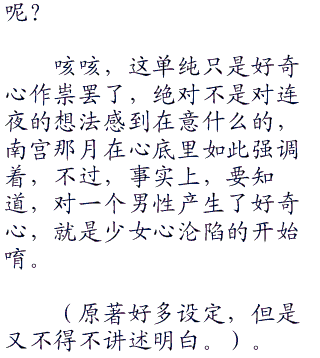 呢？
咳咳，这单纯只是好奇
心作祟罢了，绝对不是对连
夜的想法感到在意什么的，
南宫那月在心底里如此强调
着，不过，事实上，要知
道，对一个男性产生了好奇
心，就是少女心沦陷的开始
唷。
（原著好多设定，但是
又不得不讲述明白。）。